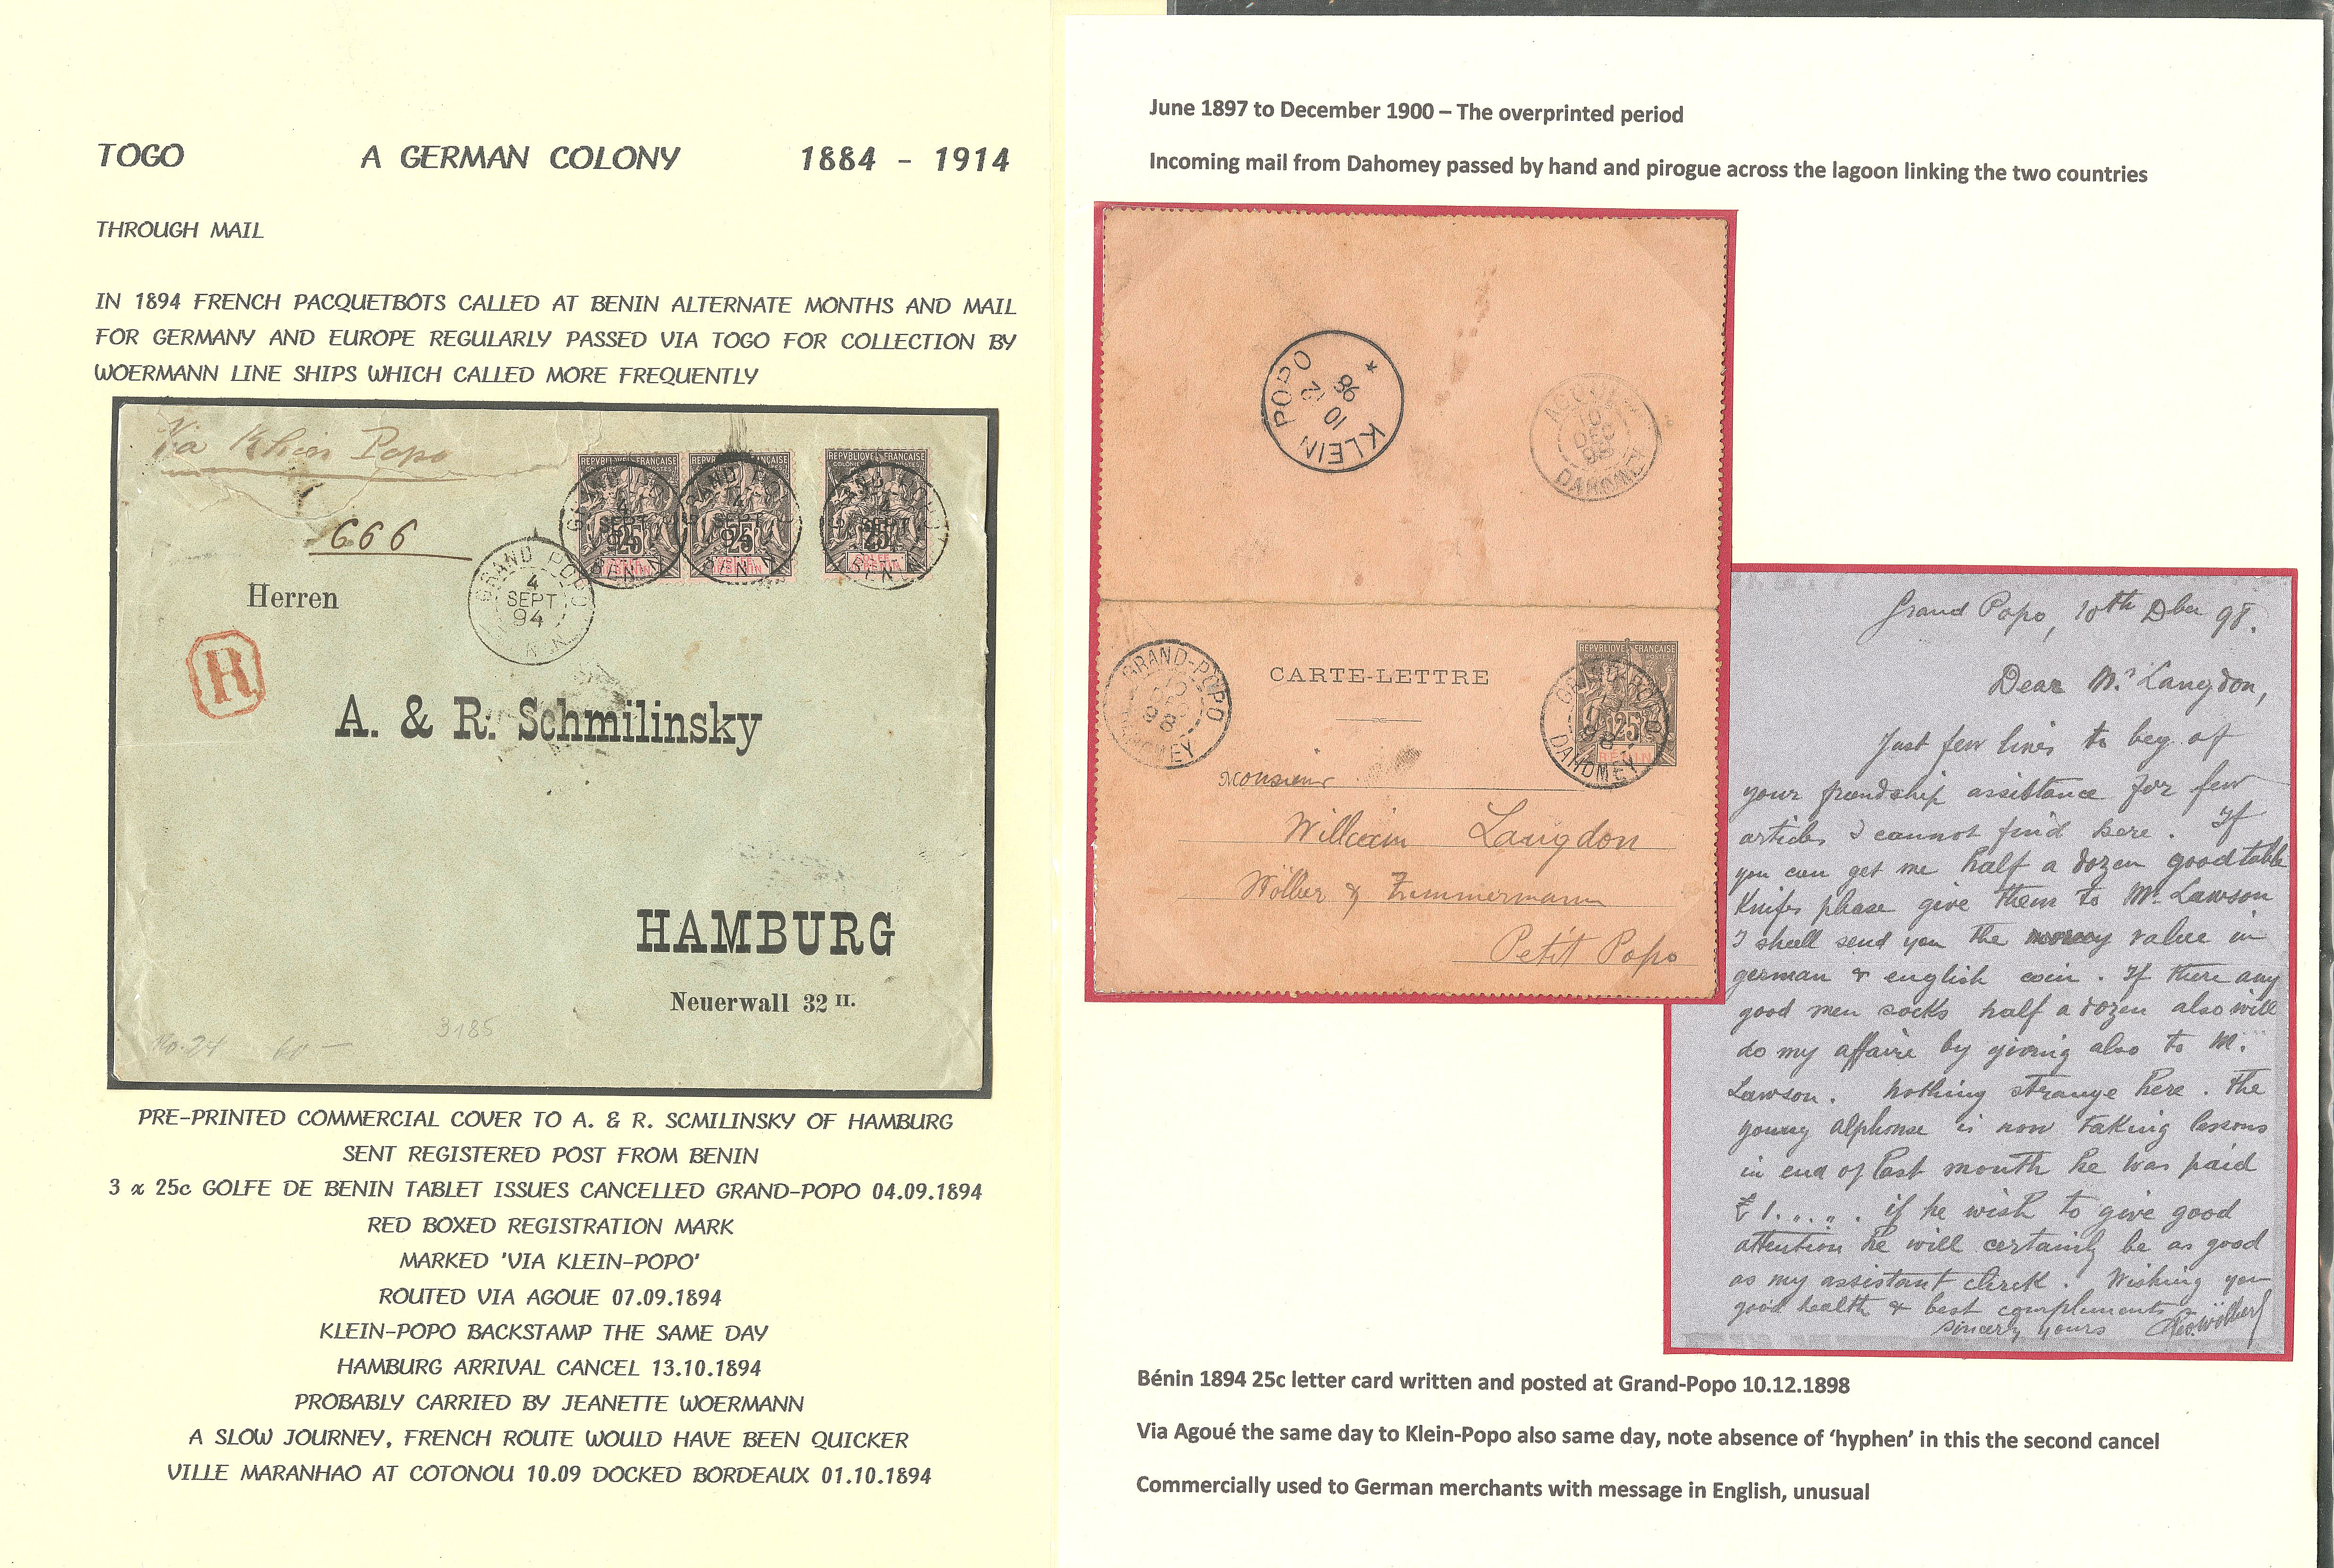 TOGO A GERMAN COLONY 1884 - 1914
THROUGH MAIL
IN 1894 FRENCH PACQUETBOTS CALLED AT BENIN ALTERNATE MONTHS AND MAIL
FOR GERMANY AND EUROPE REGULARLY PASSED VIA TOGO FOR COLLECTION BY
WOERMANN LINE SHIPS WHICH CALLED MORE FREQUENTLY
Via Klein Popo
666
REPVBLIQVE FRANÇAISE
COLONIES POSTES
25
GOLFE DE BENIN
REPVBLIQVE FRANÇAISE
25
REPVBLIQVE FRANÇAISE
25
GRAND POPO
4
SEPT
94
BENIN
Herren
R
A. & R. Schmilinsky
HAMBURG
Neuerwall 32 II.
No. 24 60 —
3185
PRE-PRINTED COMMERCIAL COVER TO A. & R. SCMILINSKY OF HAMBURG
SENT REGISTERED POST FROM BENIN
3 x 25c GOLFE DE BENIN TABLET ISSUES CANCELLED GRAND-POPO 04.09.1894
RED BOXED REGISTRATION MARK
MARKED 'VIA KLEIN-POPO'
ROUTED VIA AGOUE 07.09.1894
KLEIN-POPO BACKSTAMP THE SAME DAY
HAMBURG ARRIVAL CANCEL 13.10.1894
PROBABLY CARRIED BY JEANETTE WOERMANN
A SLOW JOURNEY, FRENCH ROUTE WOULD HAVE BEEN QUICKER
VILLE MARANHAO AT COTONOU 10.09 DOCKED BORDEAUX 01.10.1894
June 1897 to December 1900 – The overprinted period
Incoming mail from Dahomey passed by hand and pirogue across the lagoon linking the two countries
KLEIN POPO
10 12
98
*
AGOUÉ
10
DEC
98
DAHOMEY
GRAND-POPO
10
DEC
98
DAHOMEY
CARTE-LETTRE
REPVBLIQVE FRANÇAISE
25
BENIN
GRAND-POPO
98
DAHOMEY
Monsieur
William Langdon
Wölber & Zimmermann
Petit Popo
Grand Popo, 10th Dber 98.
Dear Mr. Langdon,
Just few lines to beg of
your friendship assistance for few
articles I cannot find here. If
you can get me half a dozen good table
Knifes please give them to Mr. Lawson
I shall send you the money value in
german & english coin. If there any
good men socks half a dozen also will
do my affaire by giving also to M.
Lawson. Nothing strange here. The
young Alphonse is now taking lessons
in end of last month he was paid
£ 1. „. „. if he wish to give good
attention he will certainly be as good
as my assistant clerck. Wishing you
good health & best complements
sincerly yours
Bénin 1894 25c letter card written and posted at Grand-Popo 10.12.1898
Via Agoué the same day to Klein-Popo also same day, note absence of ‘hyphen’ in this the second cancel
Commercially used to German merchants with message in English, unusual